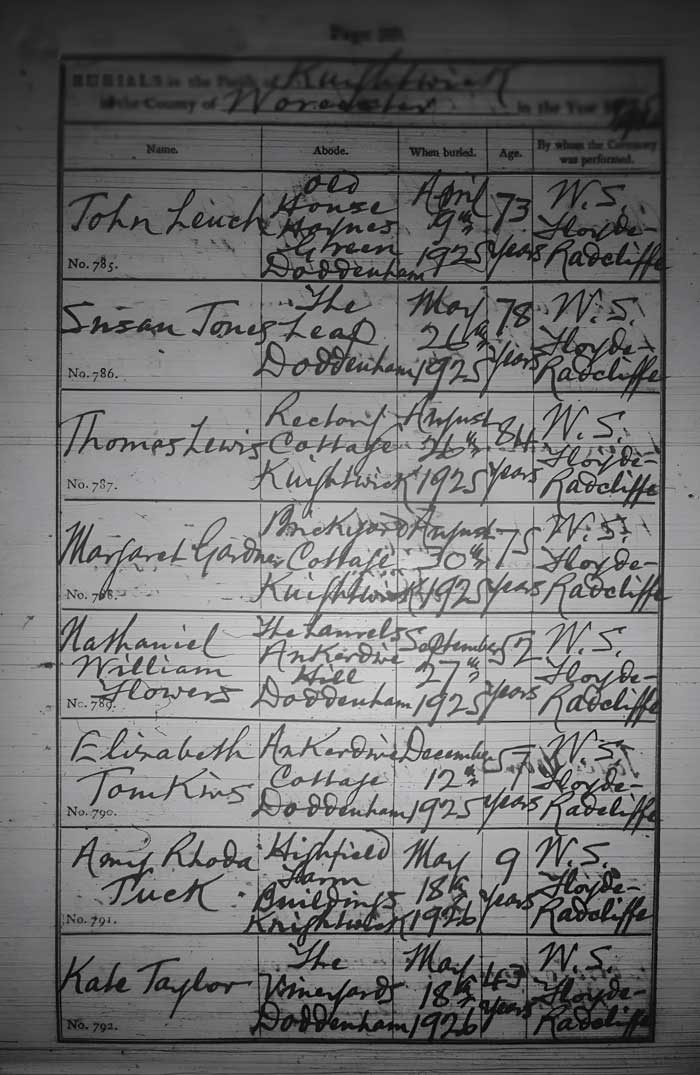 BURIALS in the Parish of Knightwick
in the County of Worcester in the Year
Name. Abode. When buried. Age. By whom the Ceremony was performed.
John Leuch
No. 785.
Old
House
Haynes
Green
Doddenham
April
9th
1925
73
years
W. S.
Floyde-
Radcliffe
Susan Jones
No. 786.
The
Leap
Doddenham
May
26th
1925
78
years
W. S.
Floyde-
Radcliffe
Thomas Lewis
No. 787.
Rectory
Cottage
Knightwick
August
26th
1925
84
years
W. S.
Floyde-
Radcliffe
Margaret Gardner
No. 788.
Brickyard
Cottage
Knightwick
August
30th
1925
75
years
W. S.
Floyde-
Radcliffe
Nathaniel
William
Flowers
No. 789.
The Laurels
Ankerdine
Hill
Doddenham
September
27th
1925
52
years
W. S.
Floyde-
Radcliffe
Elizabeth
Tomkins
No. 790.
Ankerdine
Cottage
Doddenham
December
12th
1925
57
years
W. S.
Floyde-
Radcliffe
Amy Rhoda
Tuck
No. 791.
Highfield
Farm
Buildings
Knightwick
May
18th
1926
9
years
W. S.
Floyde-
Radcliffe
Kate Taylor
No. 792.
The
Vineyards
Doddenham
May
18th
1926
43
years
W. S.
Floyde-
Radcliffe